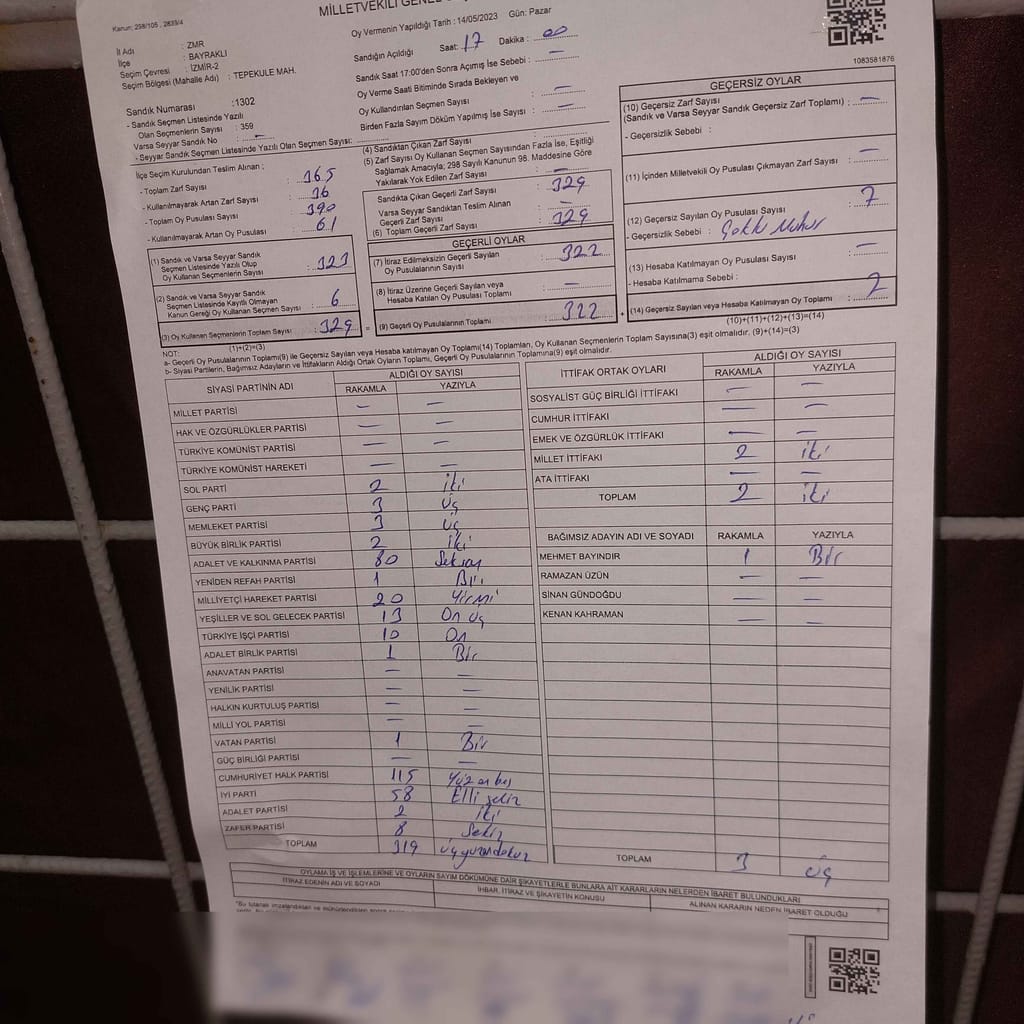 Kanun: 298/105 , 2839/4
MİLLETVEKİLİ GENEL
Oy Vermenin Yapıldığı Tarih : 14/05/2023 Gün: Pazar
İl Adı : ZMR
İlçe : BAYRAKLI
Seçim Çevresi : İZMİR-2
Seçim Bölgesi (Mahalle Adı) : TEPEKULE MAH.
Sandığın Açıldığı Saat: 17 Dakika : 00
Sandık Saat 17:00'den Sonra Açımış İse Sebebi : —
Oy Verme Saati Bitiminde Sırada Bekleyen ve
Oy Kullandırılan Seçmen Sayısı : —
Birden Fazla Sayım Döküm Yapılmış İse Sayısı : —
1083581876
Sandık Numarası :1302
- Sandık Seçmen Listesinde Yazılı
Olan Seçmenlerin Sayısı : 359
Varsa Seyyar Sandık No : —
- Seyyar Sandık Seçmen Listesinde Yazılı Olan Seçmen Sayısı:
İlçe Seçim Kurulundan Teslim Alınan ;
- Toplam Zarf Sayısı : 365
- Kullanılmayarak Artan Zarf Sayısı : 36
- Toplam Oy Pusulası Sayısı : 390
- Kullanılmayarak Artan Oy Pusulası : 61
(1) Sandık ve Varsa Seyyar Sandık
Seçmen Listesinde Yazılı Olup
Oy Kullanan Seçmenlerin Sayısı : 323
(2) Sandık ve Varsa Seyyar Sandık
Seçmen Listesinde Kayıtlı Olmayan
Kanun Gereği Oy Kullanan Seçmenlerin Sayısı : 6
(3) Oy Kullanan Seçmenlerin Toplam Sayısı : 329 =
(1)+(2)=(3)
(4) Sandıktan Çıkan Zarf Sayısı :
(5) Zarf Sayısı Oy Kullanan Seçmen Sayısından Fazla İse, Eşitliği
Sağlamak Amacıyla; 298 Sayılı Kanunun 98. Maddesine Göre
Yakılarak Yok Edilen Zarf Sayısı : —
Sandıkta Çıkan Geçerli Zarf Sayısı : 329
Varsa Seyyar Sandıktan Teslim Alınan
Geçerli Zarf Sayısı : —
(6) Toplam Geçerli Zarf Sayısı : 329
GEÇERLİ OYLAR
(7) İtiraz Edilmeksizin Geçerli Sayılan
Oy Pusulalarının Sayısı : 322
(8) İtiraz Üzerine Geçerli Sayılan veya
Hesaba Katılan Oy Pusulası Toplamı : —
(9) Geçerli Oy Pusulalarının Toplamı : 322 +
GEÇERSİZ OYLAR
(10) Geçersiz Zarf Sayısı
(Sandık ve Varsa Seyyar Sandık Geçersiz Zarf Toplamı) : —
- Geçersizlik Sebebi :
(11) İçinden Milletvekili Oy Pusulası Çıkmayan Zarf Sayısı : —
(12) Geçersiz Sayılan Oy Pusulası Sayısı : 7
- Geçersizlik Sebebi :
(13) Hesaba Katılmayan Oy Pusulası Sayısı : —
- Hesaba Katılmama Sebebi :
(14) Geçersiz Sayılan veya Hesaba Katılmayan Oy Toplamı : 7
(10)+(11)+(12)+(13)=(14)
NOT:
a- Geçerli Oy Pusulalarının Toplamı(9) ile Geçersiz Sayılan veya Hesaba katılmayan Oy Toplamı(14) Toplamları, Oy Kullanan Seçmenlerin Toplam Sayısına(3) eşit olmalıdır. (9)+(14)=(3)
b- Siyasi Partilerin, Bağımsız Adayların ve İttifakların Aldığı Ortak Oyların Toplamı, Geçerli Oy Pusulalarının Toplamına(9) eşit olmalıdır.
SİYASİ PARTİNİN ADI ALDIĞI OY SAYISI
RAKAMLA YAZIYLA
MİLLET PARTİSİ — —
HAK VE ÖZGÜRLÜKLER PARTİSİ — —
TÜRKİYE KOMÜNİST PARTİSİ — —
TÜRKİYE KOMÜNİST HAREKETİ — —
SOL PARTİ 2 iki
GENÇ PARTİ 3 üç
MEMLEKET PARTİSİ 3 üç
BÜYÜK BİRLİK PARTİSİ 2 iki
ADALET VE KALKINMA PARTİSİ 80 Seksen
YENİDEN REFAH PARTİSİ 1 Bir
MİLLİYETÇİ HAREKET PARTİSİ 20 Yirmi
YEŞİLLER VE SOL GELECEK PARTİSİ 13 On üç
TÜRKİYE İŞÇİ PARTİSİ 10 On
ADALET BİRLİK PARTİSİ 1 Bir
ANAVATAN PARTİSİ — —
YENİLİK PARTİSİ — —
HALKIN KURTULUŞ PARTİSİ — —
MİLLİ YOL PARTİSİ — —
VATAN PARTİSİ 1 Bir
GÜÇ BİRLİĞİ PARTİSİ — —
CUMHURİYET HALK PARTİSİ 115 Yüz on beş
İYİ PARTİ 58 Elli sekiz
ADALET PARTİSİ 2 iki
ZAFER PARTİSİ 8 Sekiz
TOPLAM 319 üçyüzondokuz
İTTİFAK ORTAK OYLARI ALDIĞI OY SAYISI
RAKAMLA YAZIYLA
SOSYALİST GÜÇ BİRLİĞİ İTTİFAKI — —
CUMHUR İTTİFAKI — —
EMEK VE ÖZGÜRLÜK İTTİFAKI — —
MİLLET İTTİFAKI 2 iki
ATA İTTİFAKI — —
TOPLAM 2 iki
BAĞIMSIZ ADAYIN ADI VE SOYADI RAKAMLA YAZIYLA
MEHMET BAYINDIR 1 Bir
RAMAZAN ÜZÜN — —
SİNAN GÜNDOĞDU — —
KENAN KAHRAMAN — —
TOPLAM 3 üç
OYLAMA İŞ VE İŞLEMLERİNE VE OYLARIN SAYIM DÖKÜMÜNE DAİR ŞİKAYETLERLE BUNLARA AİT KARARLARIN NELERDEN İBARET BULUNDUKLARI
İTİRAZ EDENİN ADI VE SOYADI İHBAR, İTİRAZ VE ŞİKAYETİN KONUSU ALINAN KARARIN NEDEN İBARET OLDUĞU